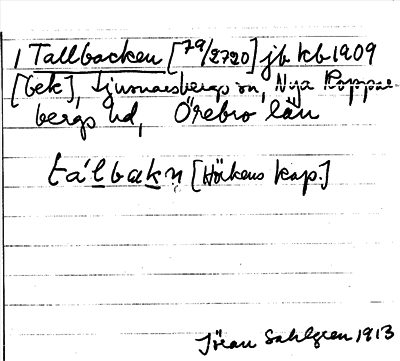 1 Tallbacken [79/2720] jb kb 1909
[bek], Ljusnarsbergs sn, Nya Koppar-
bergs hd, Örebro län
tá'lbakn̥ [Hörkens kap.]
Jöran Sahlgren 1913